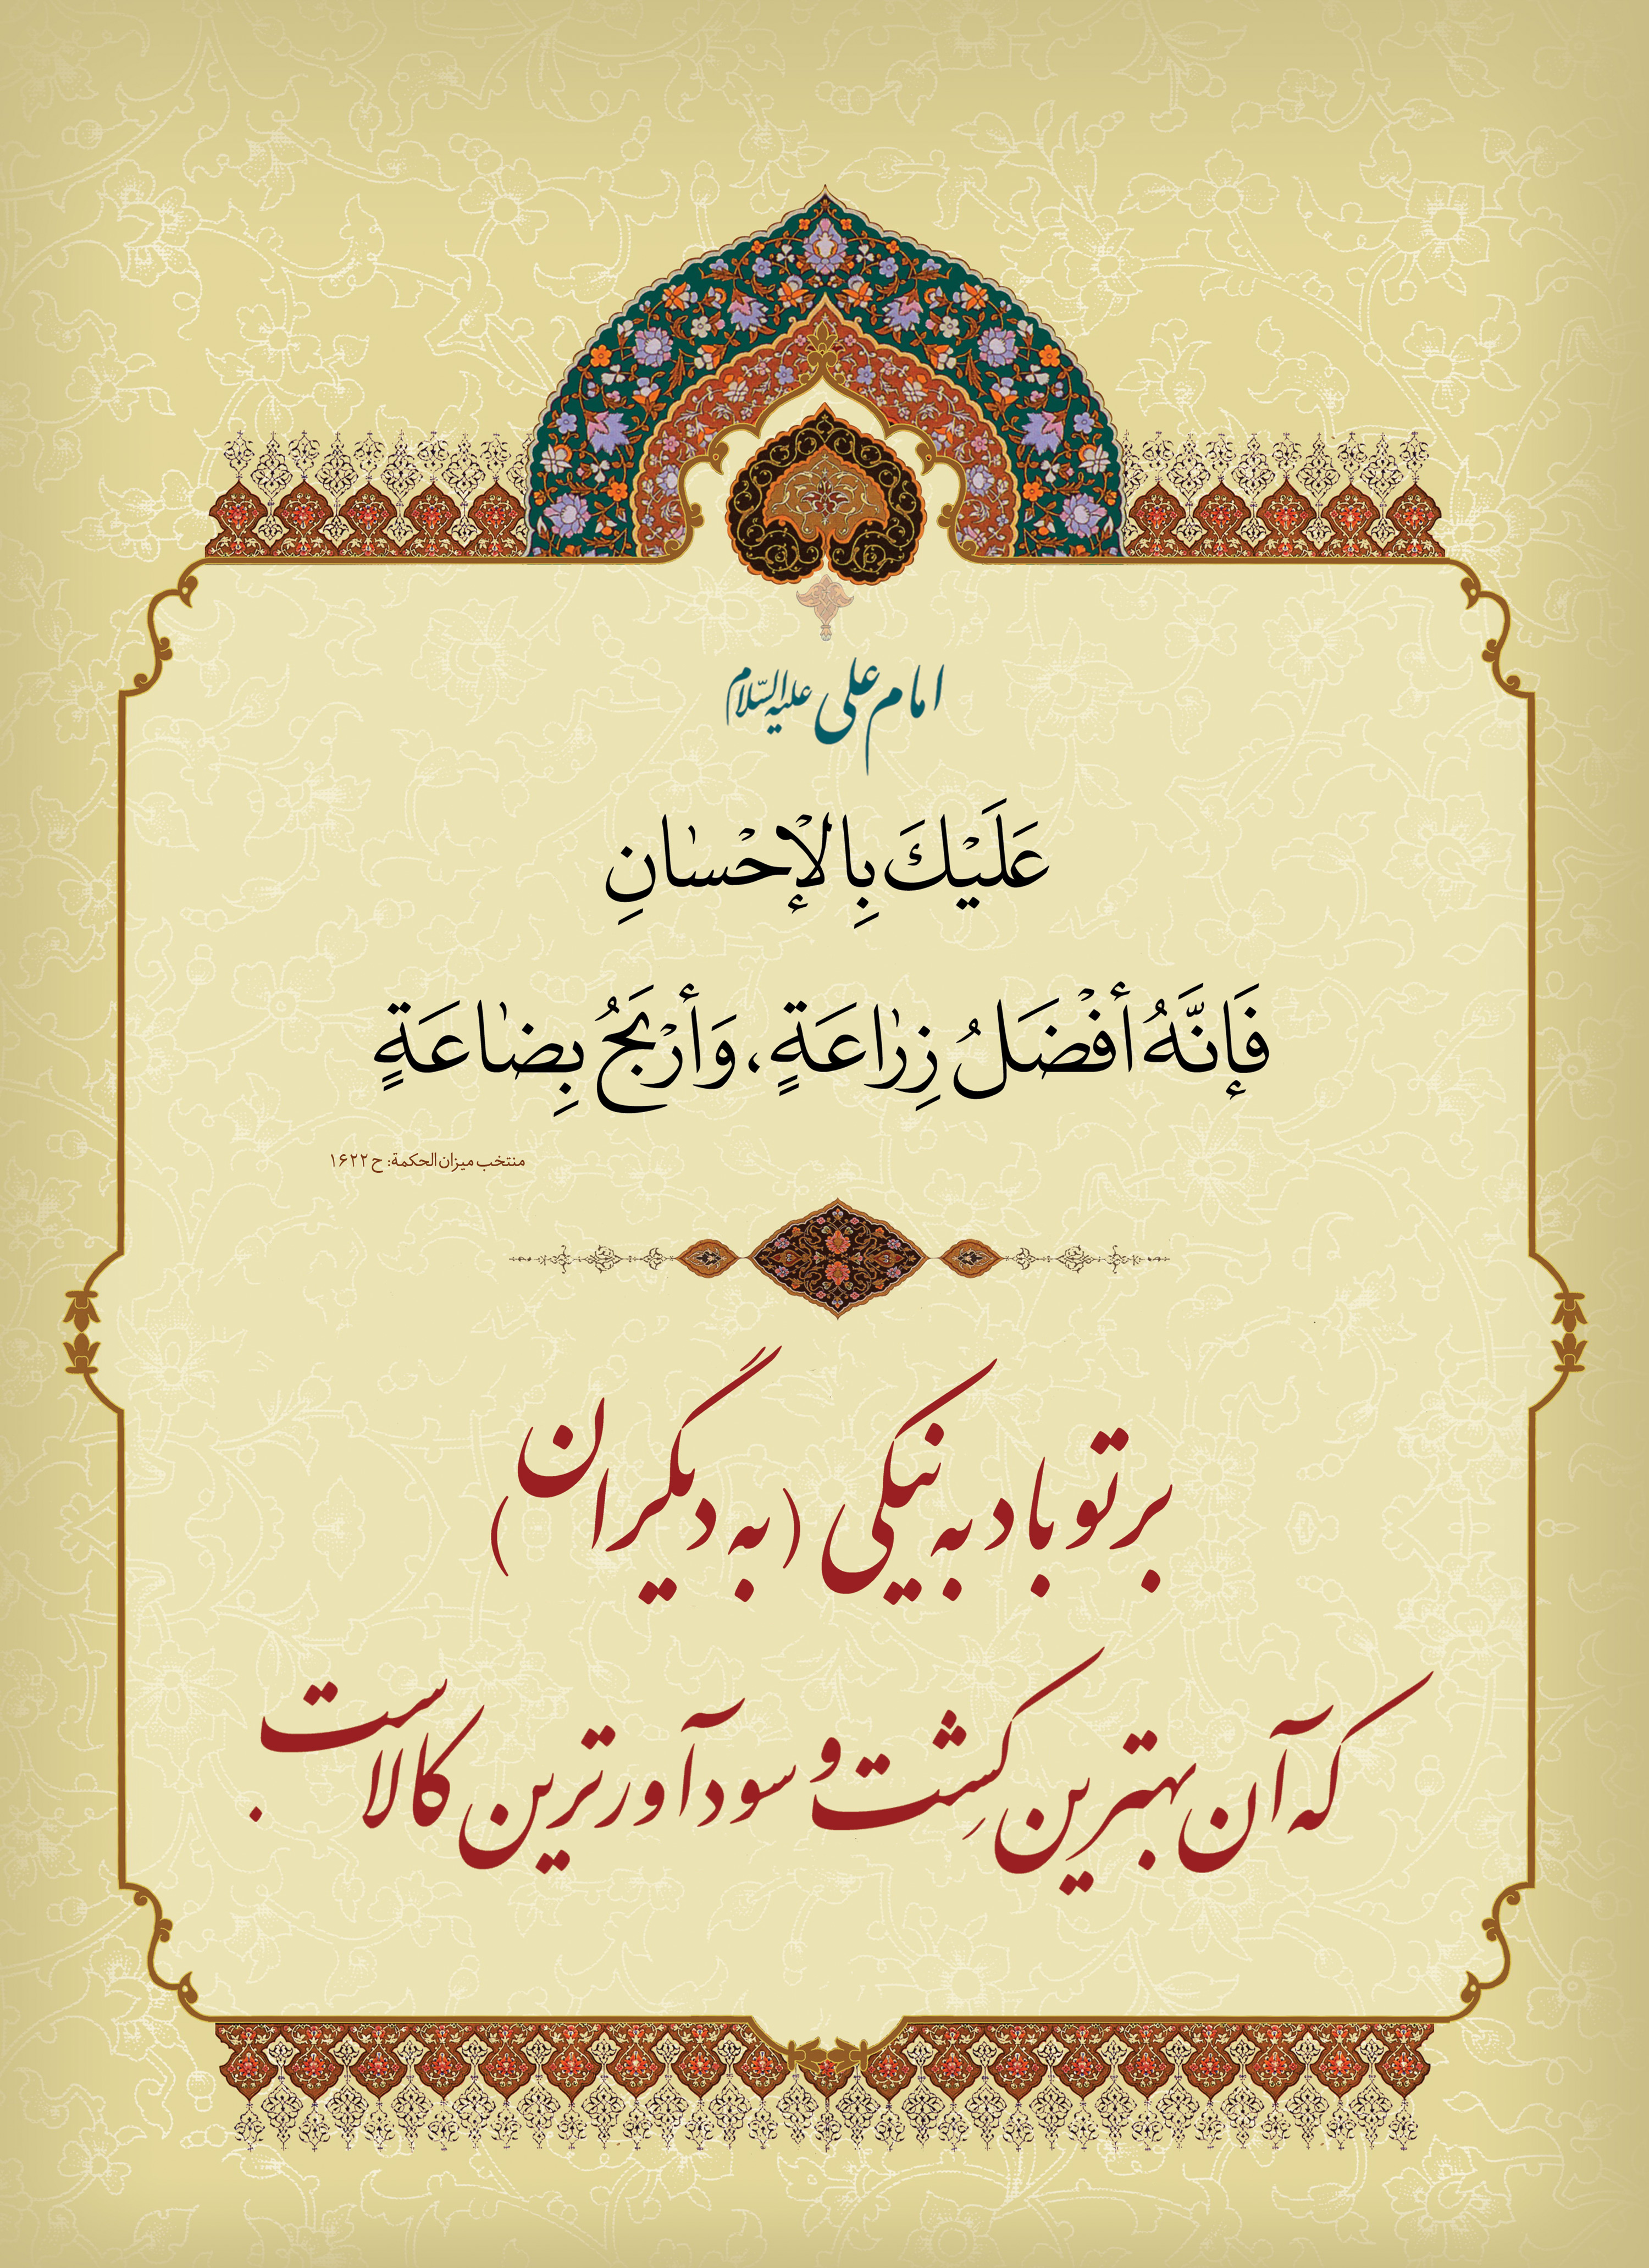 امام علی علیه‌السّلام
عَلَيْكَ بِالْإِحْسٰانِ
فَإِنَّهُ أَفْضَلُ زِرٰاعَةٍ، وَأَرْبَحُ بِضٰاعَةٍ
منتخب میزان الحکمة: ح ۱۶۲۲
بر تو باد به نیکی (به دیگران)
که آن بهترین کِشت و سودآورترین کالاست.